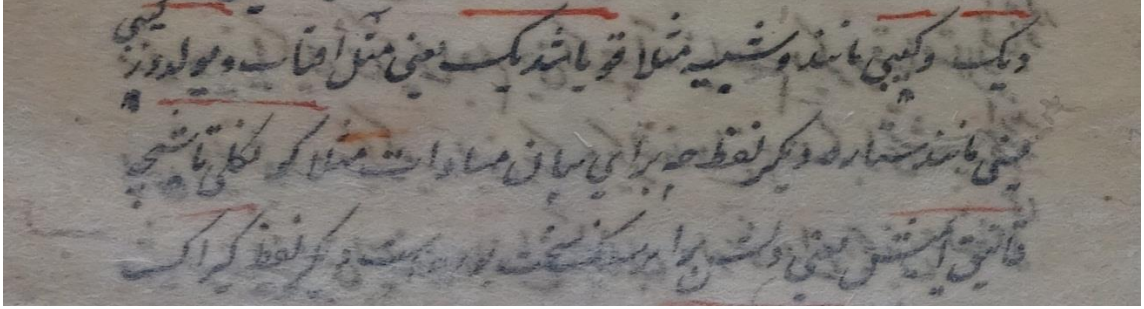 دیک و کیبی مانند و شبیه مثلا قویاشدیک یعنی مثل افتاب و یولدوز کیبی
یعنی مانند ستاره و دیگر لفظ چه برای بیان مساوات مثلا کونکلی تاشچه
قاتیق ایمش یعنی دلش برابر سنگ سخت بوده است و دیگر لفظ کیراک